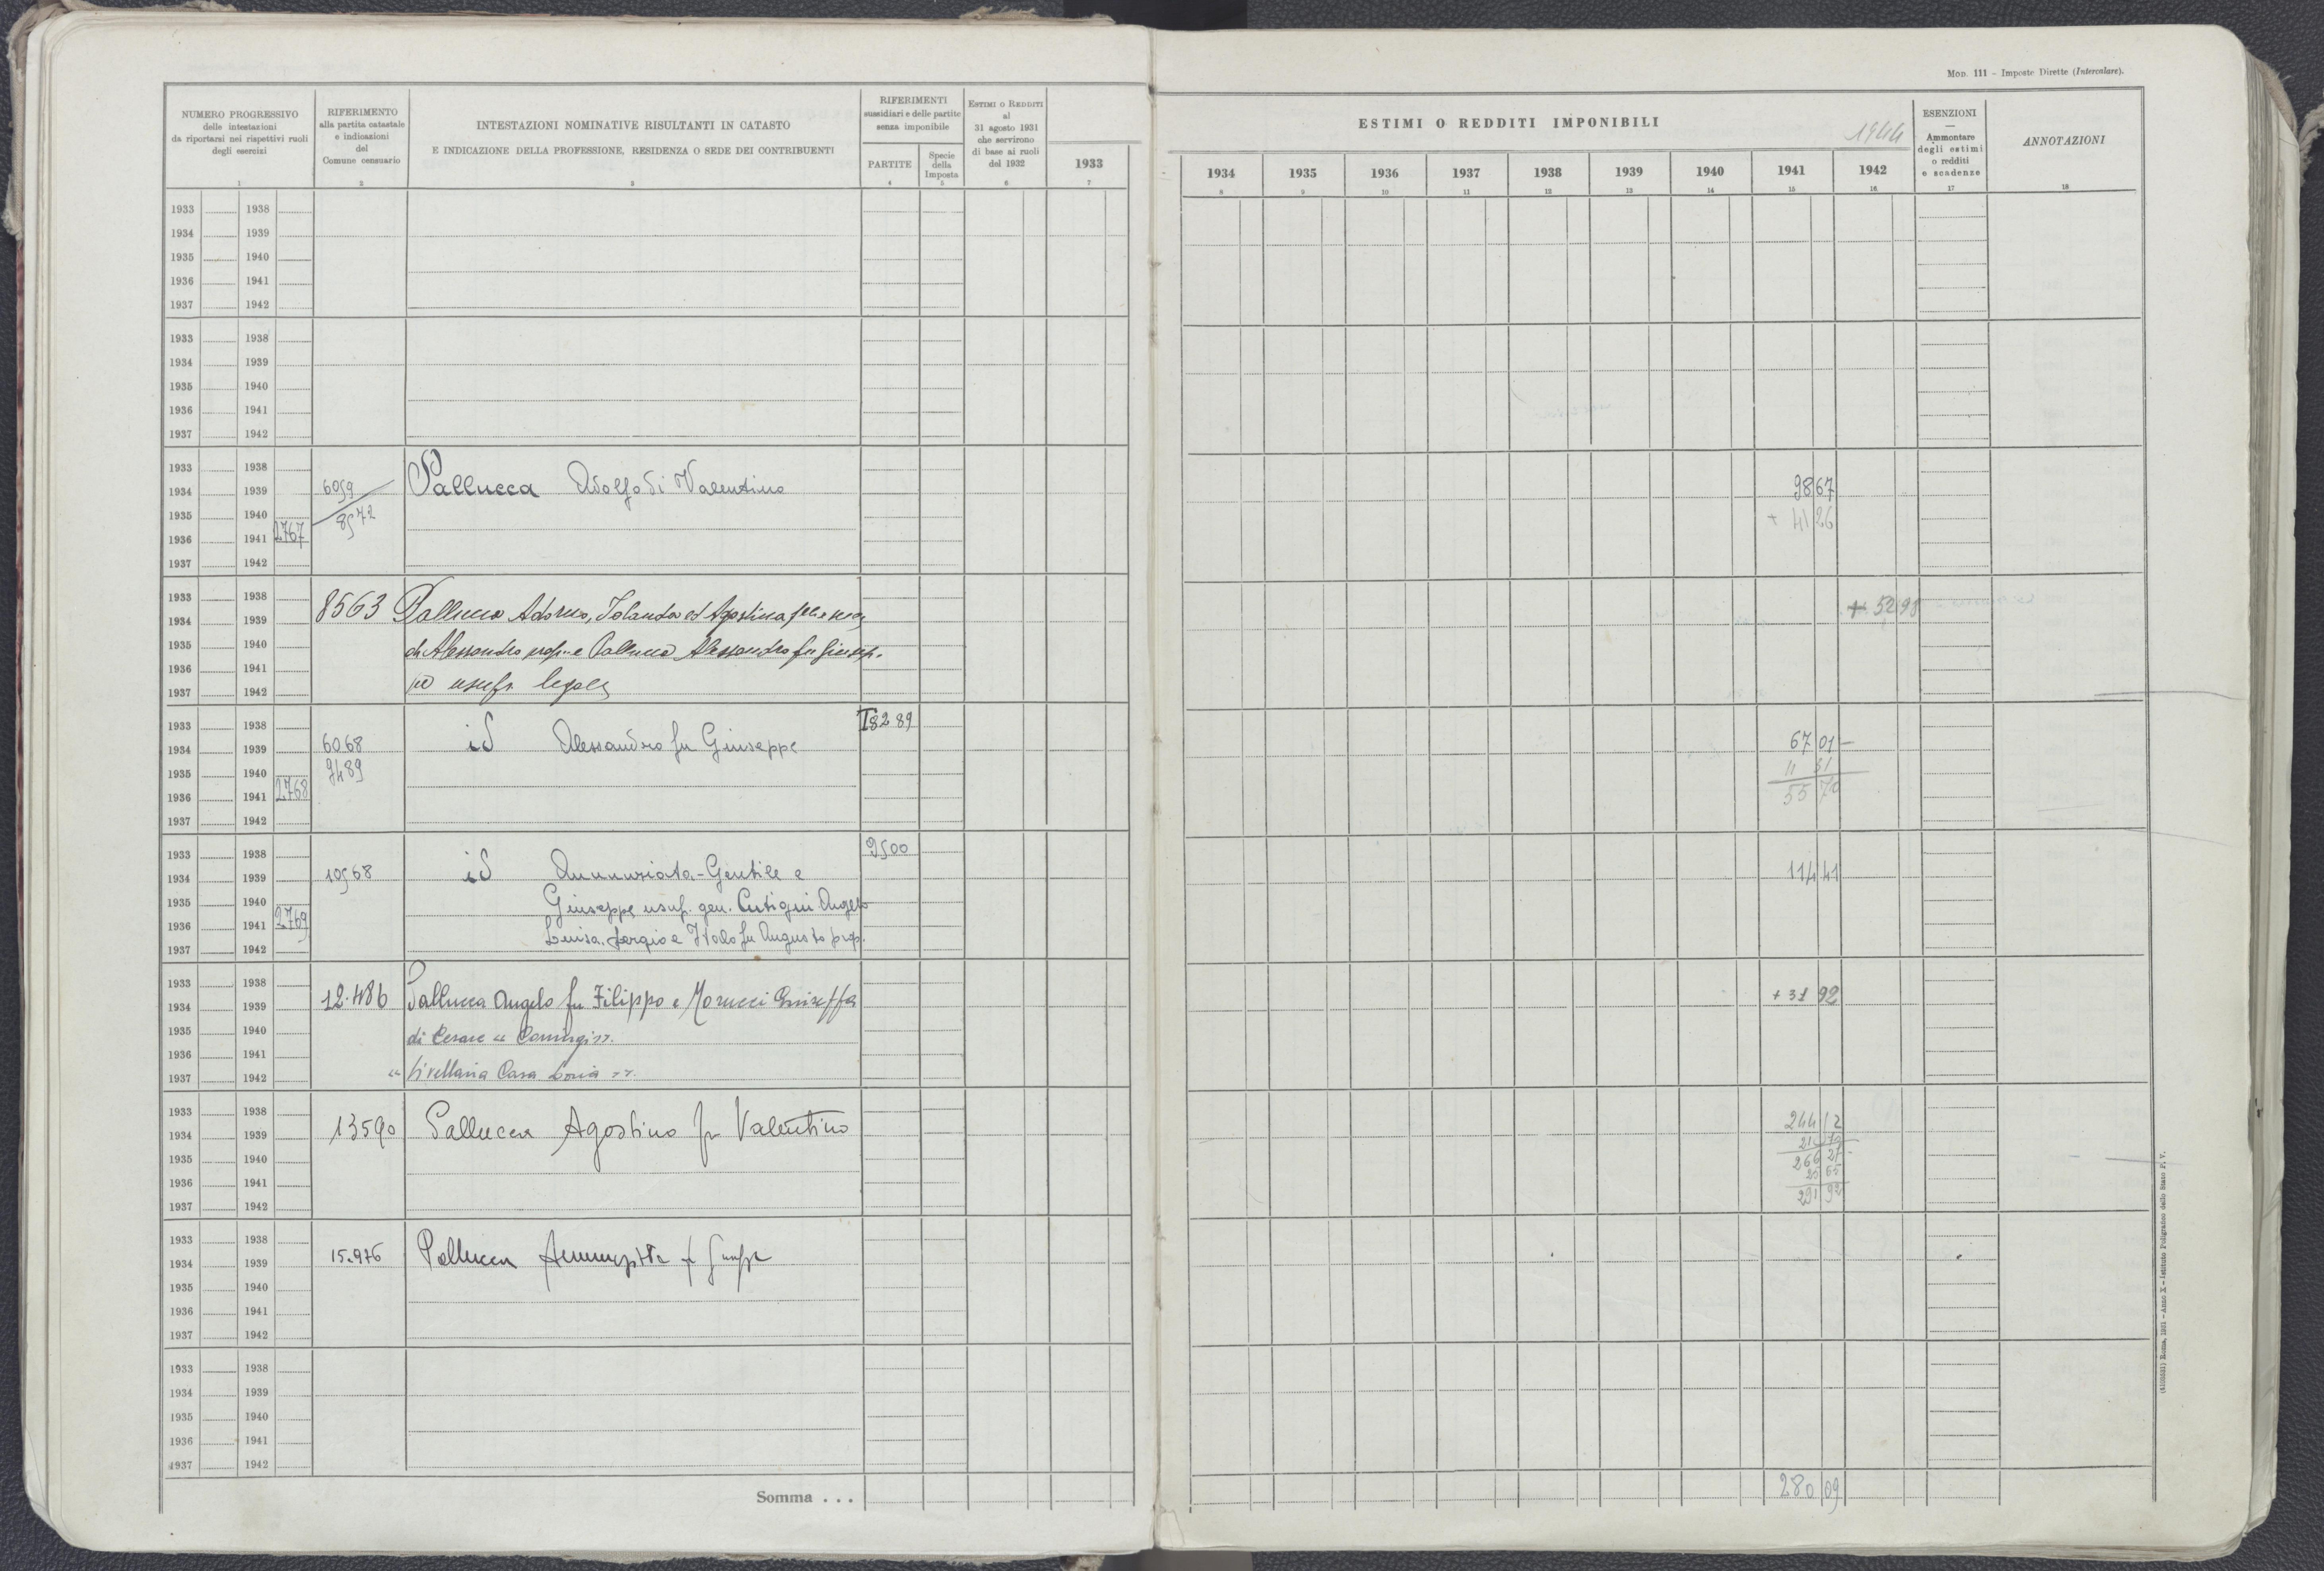 Mod. 111 - Imposte Dirette (Intercalare).
NUMERO PROGRESSIVO
delle intestazioni
da riportarsi nei rispettivi ruoli
degli esercizi
1
RIFERIMENTO
alla partita catastale
e indicazioni
del
Comune censuario
2
INTESTAZIONI NOMINATIVE RISULTANTI IN CATASTO
E INDICAZIONE DELLA PROFESSIONE, RESIDENZA O SEDE DEI CONTRIBUENTI
3
RIFERIMENTI
sussidiari e delle partite
senza imponibile
PARTITE
4
Specie
della
Imposta
5
ESTIMI O REDDITI
al
31 agosto 1931
che servirono
di base ai ruoli
del 1932
6
1933
7
ESTIMI O REDDITI IMPONIBILI
1944
1934 1935 1936 1937 1938 1939 1940 1941 1942
8 9 10 11 12 13 14 15 16
ESENZIONI
—
Ammontare
degli estimi
o redditi
e scadenze
17
ANNOTAZIONI
18
1933 1938
1934 1939
1935 1940
1936 1941
1937 1942
1933 1938
1934 1939
1935 1940
1936 1941
1937 1942
1933 1938
1934 1939 6059 Pallucca Adolfo di Valentino 98 67
1935 1940 8572 + 41 26
1936 1941 2767
1937 1942
1933 1938
1934 1939 8563 Pallucca Adorno, Iolanda ed Agostina + 52 98
1935 1940 di Alessandro prop. e Pallucca Alessandro fu Giusep.
1936 1941
1937 1942 pe usufr. legale
1933 1938 8289
1934 1939 6068 id Alessandro fu Giuseppe 67 01 —
1935 1940 9489 11 31
1936 1941 2768 55 70
1937 1942
1933 1938 9500
1934 1939 10568 id Annunziata - Gentile e 114 41
1935 1940 Giuseppe usuf. gen. Cutigni Angelo
1936 1941 2769
1937 1942 Luisa, Sergio e Italo fu Augusto prop.
1933 1938
1934 1939 12.486 Pallucca Angelo fu Filippo e Morucci + 31 92
1935 1940 di Cesare «
1936 1941
1937 1942 « livellaria Casa
1933 1938
1934 1939 13590 Pallucca Agostino fu Valentino 244 12
1935 1940 266 27
1936 1941 25 65
1937 1942 291 92
1933 1938
1934 1939 15.976 Pallucca
1935 1940
1936 1941
1937 1942
1933 1938
1934 1939
1935 1940
1936 1941
1937 1942
Somma . . . 280 09
Roma, 1931 - Anno X - Istituto Poligrafico dello Stato P. V.